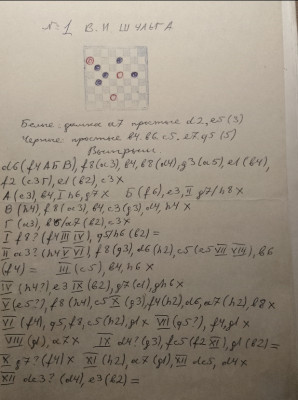 № 1 В. И ШУЛЬГА
Белые: дамка a7 простые d2, e5 (3)
Черные: простые b4, b6, c5, e7, g5 (5)
Выигрыш.
d6 (f4 А Б В), f8 (a3), b4, b8 (d4), g3 (a5), e1 (b4),
f2 (c3 Г), e1 (b2), c3 X
А (c3), b4, I h6, g7 X Б (f6), e3, II g7/h8 X
В (h4), f8 (a3), b4, c3 (g3), d4, h4 X
Г (a3), b6/a7 (b2), c3 X
I f8? (f4 III IV), g5/h6 (b2) =
II a3? (h2 V VI), f8 (g3), d6 (h2), c5 (e5 VII VIII), b6
(f4) = III (c5), b4, h6 X
IV (h4?) e3 IX (b2), g7 (d1), gh6 X
V (e5?), f8 (h4), c5 X (g3), f4 (h2), d6, a7 (h2), b8 X
VI (f4), g5, f8, c5 (h2), g1 X VII (g5?), f4, g1 X
VIII (g1), a7 X IX d4? (g3), fc5 (f2 XI), g1 (b2) =
X g7? (f4) X XI (h2), a7 (g1), XII de5, d4 X
XII de3? (d4), e3 (b2) =